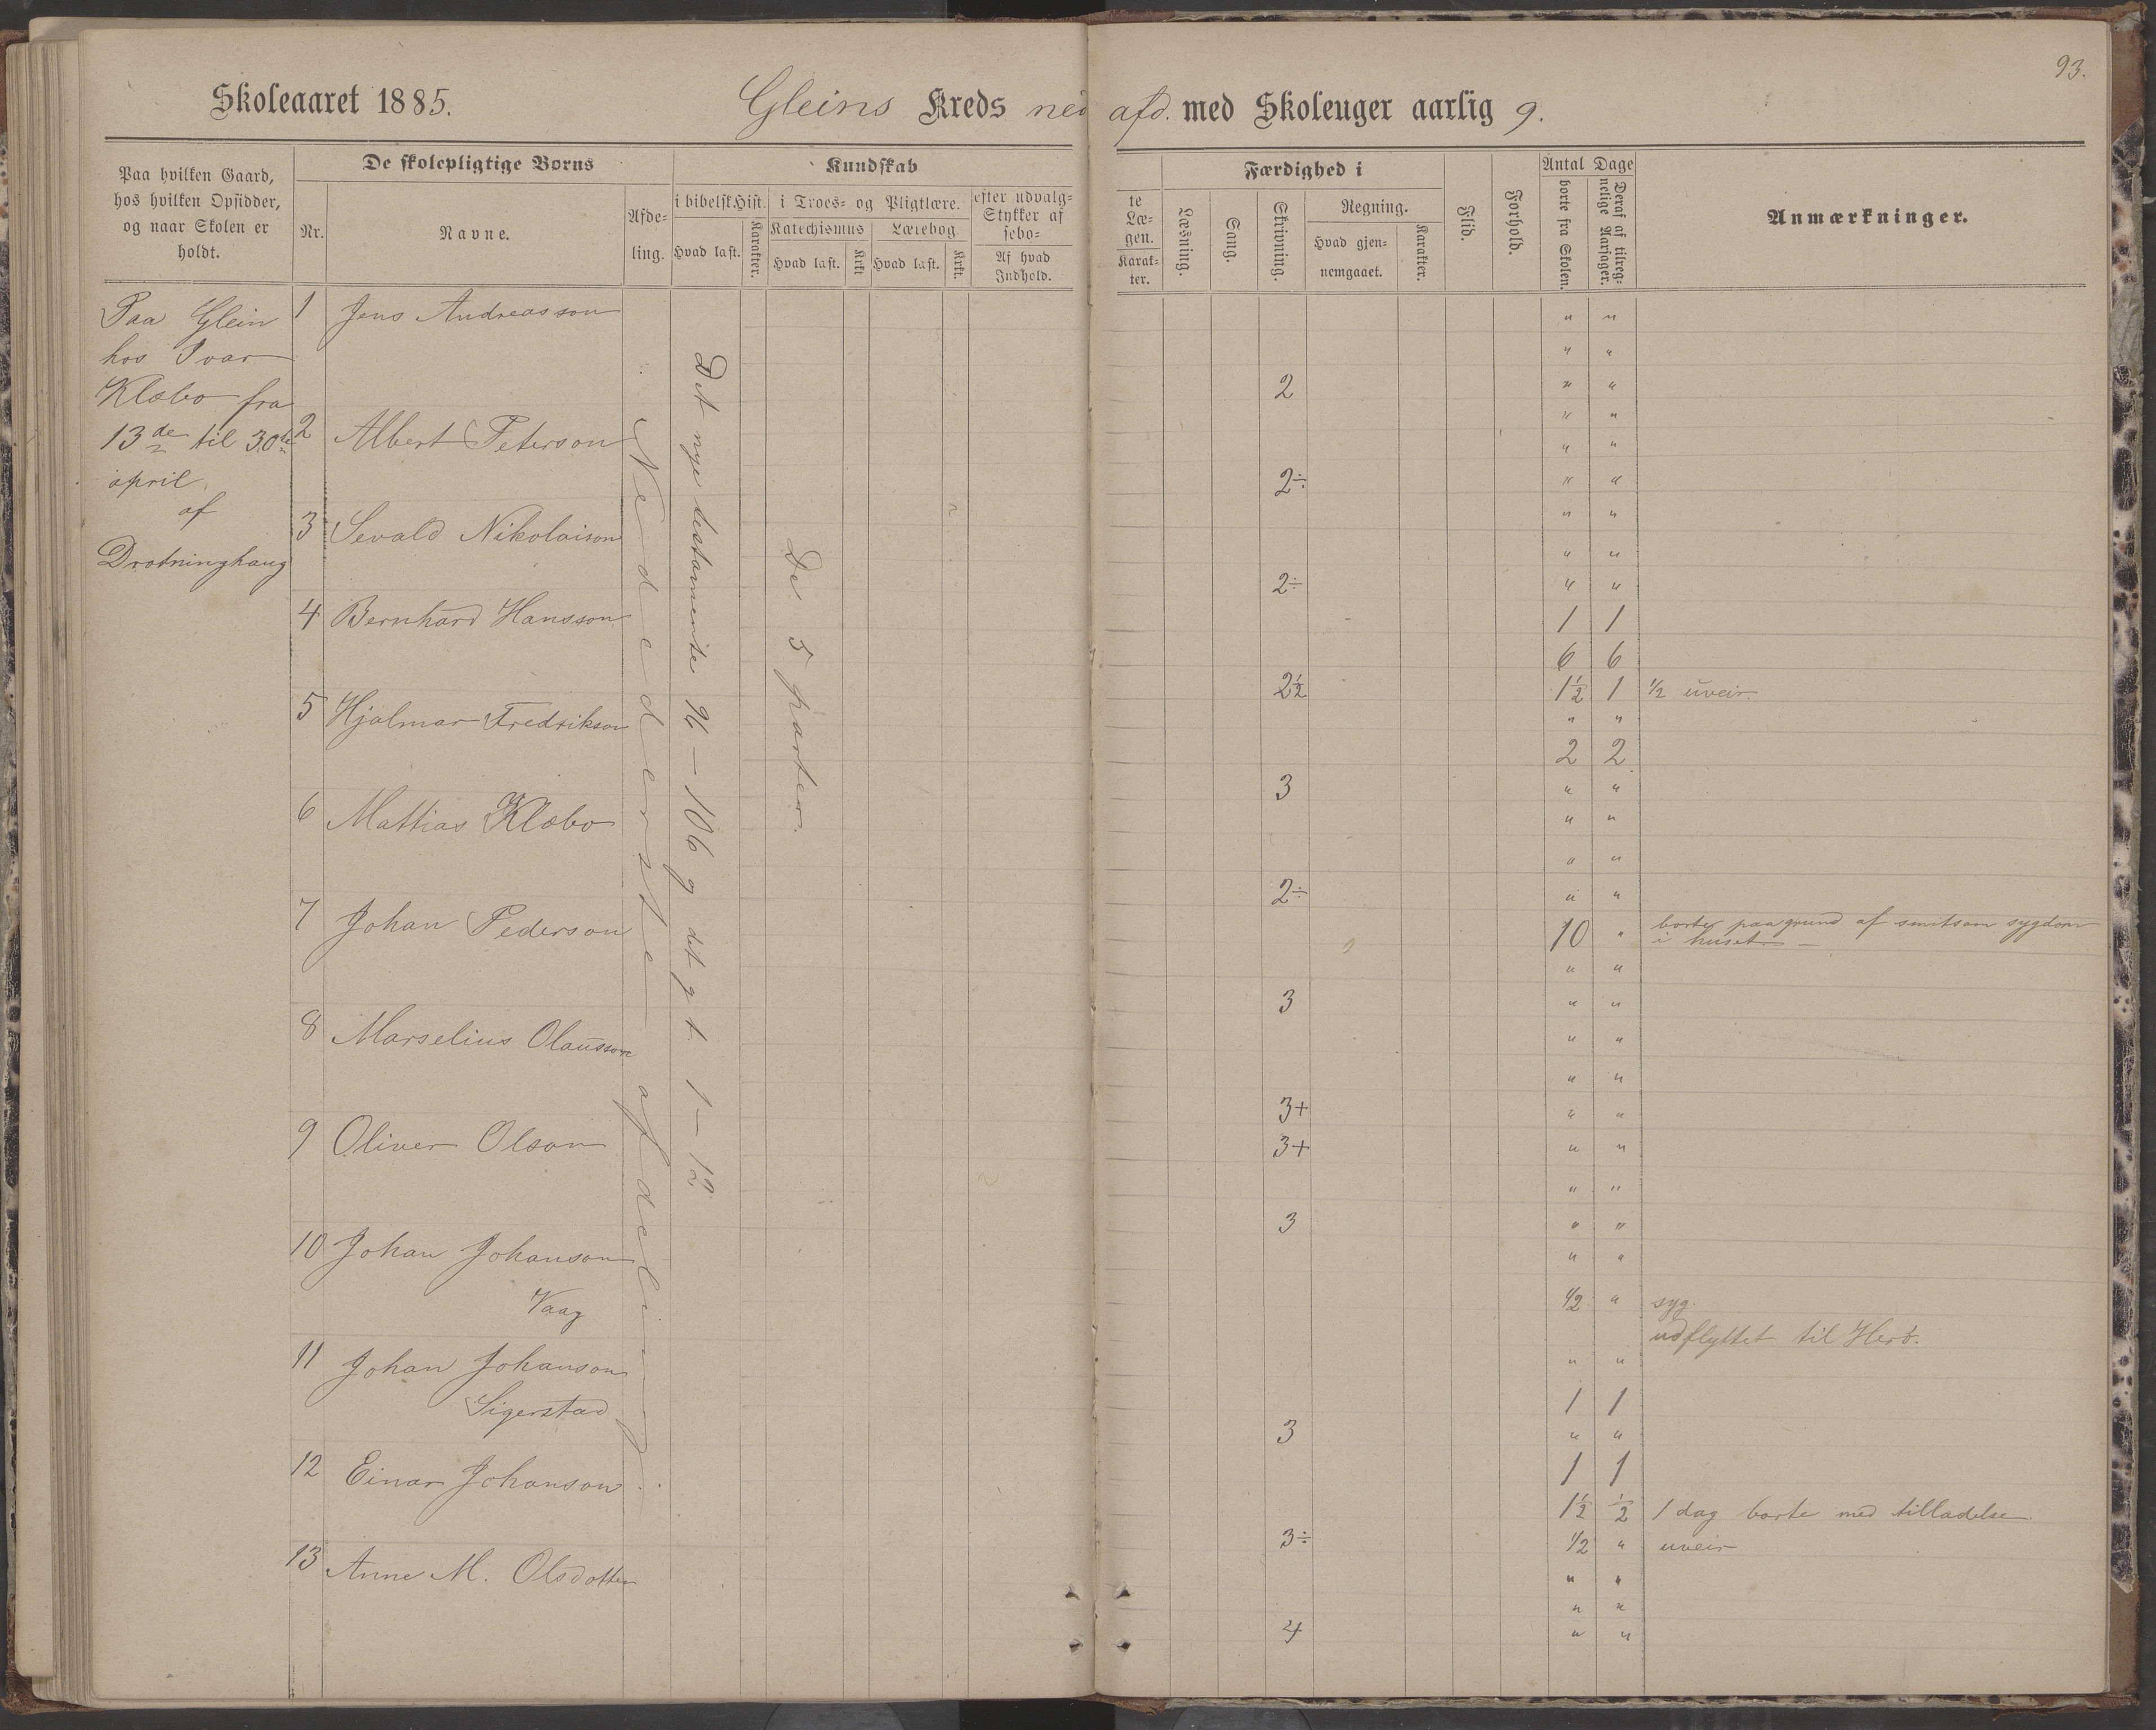 93.
Skoleaaret 1885. Gleins Kreds ned afd. med Skoleuger aarlig 9.
Paa hvilken Gaard, hos hvilken Opsidder, og naar Skolen er holdt.
De skolepligtige Børns
Nr.
Navne.
Afde-
ling.
Kundskab
i bibelsk Hist.
Hvad læst.
Karakter.
i Troes- og Pligtlære.
Katechismus
Hvad læst.
Krkt
Lærebog.
Hvad læst.
Krkt.
efter udvalg-
Stykker af
sebo-
Af hvad
Indhold.
te
Læ-
gen.
Karak-
ter.
Færdighed i
Læsning.
Sang.
Skrivning.
Regning.
Hvad gjen-
nemgaaet.
Karakter.
Flid.
Forhold.
Antal Dage
borte fra Skolen.
Deraf af tilreg-
nelige Aarsager.
Anmærkninger.
Paa Glein
hos Ivar
Klæbo fra
13de til 30te
april
af
Drotninghaug
Nedederste afdeling.
Det nye testamente 96 – 106 og det g t 1 – 12
De 5 parter.
1 Jens Andreasson
" "
" "
2 " "
" "
2 Albert Peterson
" "
2÷ " "
" "
3 Sevald Nikolaison
" "
2÷ " "
4 Bernhard Hansson
1 1
6 6
2½ 1½ 1 ½ uveir
5 Hjalmar Fredrikson
" "
2 2
3 " "
6 Mattias Klæbo
" "
" "
2÷ " "
7 Johan Pederson
10 " borte paa grund af smitsom sygdom
i huset –
" "
3 " "
8 Marselius Olausson
" "
" "
3+ " "
9 Oliver Olson
3+ " "
" "
3 " "
10 Johan Johanson
Vaag
" "
½ " syg.
udflyttet til Herø.
11 Johan Johanson
Sigerstad
" "
1 1
3 " "
12 Einar Johanson
1 1
1½ ½ 1 dag borte med tilladelse
3÷ ½ " uveir
13 Anne M. Olsdotter
" "
" "
4 " "